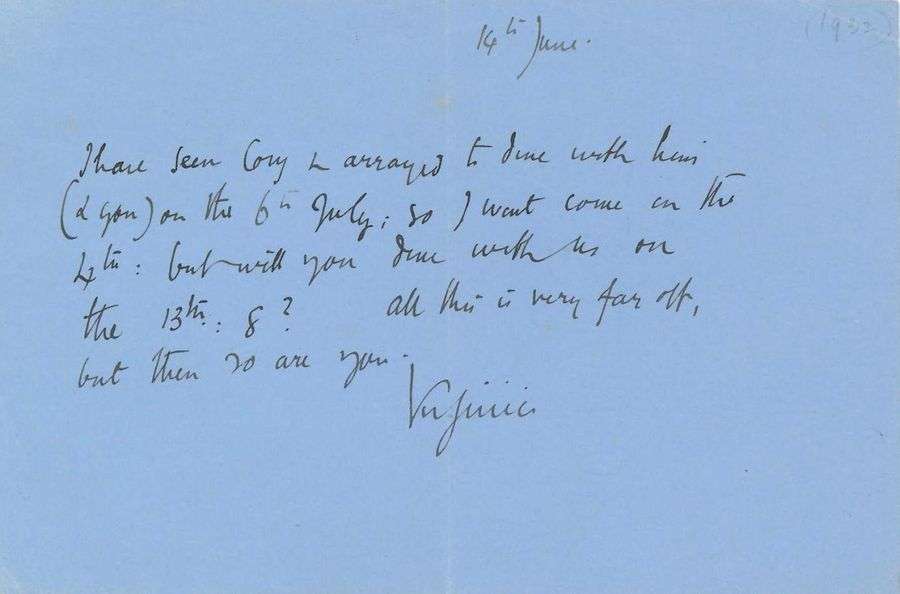 14th June.
(1932)
I have seen Cory & arranged to dine with him
(& you) on the 6th July; so I wont come on the
4th: but will you dine with us on
the 13th: 8? All this is very far off,
but then so are you.
Virginia